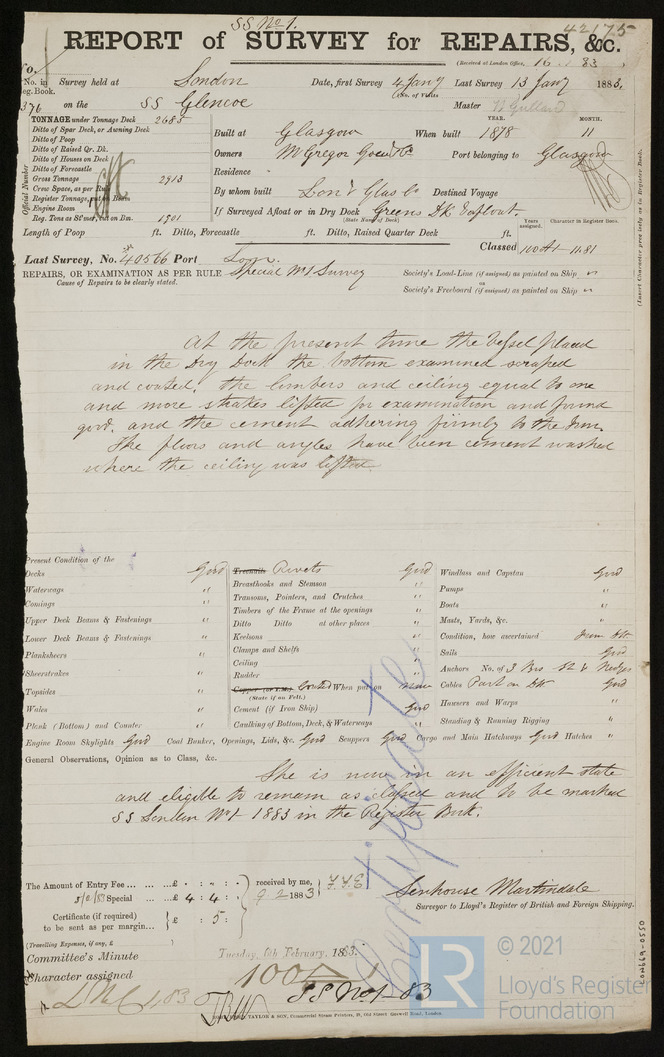 SS No 1.
42175
REPORT of SURVEY for REPAIRS, &c.
(Received at London Office, 16 83
No. in Survey held at London Date, first Survey 4 Jany Last Survey 13 Jany 1883.
Reg. Book.
(No. of Visits
376 on the SS Glencoe Master
TONNAGE under Tonnage Deck 2685
Ditto of Spar Deck, or Awning Deck
Ditto of Poop
Ditto of Raised Qr. Dk.
Ditto of Houses on Deck
Ditto of Forecastle
Gross Tonnage 2913
Crew Space, as per Rule
Register Tonnage, cut on Beam
Engine Room
Reg. Tons as St'mer, cut on Bm. 1901
Official Number
YEAR. MONTH.
Built at Glasgow When built 1878 11
Owners McGregor Gow & Co Port belonging to Glasgow
Residence
By whom built Lon & Glas Co Destined Voyage
If Surveyed Afloat or in Dry Dock Greens Dk & afloat.
(State Name of Dock)
Years assigned. Character in Register Book.
(Insert Character precisely as in Register Book.
Length of Poop ft. Ditto, Forecastle ft. Ditto, Raised Quarter Deck ft.
Classed 100A1 11.81
Last Survey, No. 40566 Port Lon.
REPAIRS, OR EXAMINATION AS PER RULE Special No 1 Survey
Cause of Repairs to be clearly stated.
Society's Load-Line (if assigned) as painted on Ship
or
Society's Freeboard (if assigned) as painted on Ship
At the present time the Vessel placed
in the Dry Dock the bottom examined scraped
and coated. the limbers and ceiling equal to one
and more strakes lifted for examination and found
good. and the cement adhering firmly to the Iron.
The floors and angles have been cement washed
where the ceiling was lifted
Present Condition of the
Decks Good
Waterways "
Comings "
Upper Deck Beams & Fastenings "
Lower Deck Beams & Fastenings "
Planksheers "
Sheerstrakes "
Topsides "
Wales "
Plank (Bottom) and Counter "
Treenails Rivets Good
Breasthooks and Stemson "
Transoms, Pointers, and Crutches "
Timbers of the Frame at the openings "
Ditto Ditto at other places "
Keelsons "
Clamps and Shelfs "
Ceiling "
Rudder "
Copper (or Y.M.) Coated When put on now
(State if on Felt.)
Cement (if Iron Ship) Good
Caulking of Bottom, Deck, & Waterways "
Windlass and Capstan Good
Pumps "
Boats "
Masts, Yards, &c. "
Condition, how ascertained from Dk
Sails Good
Anchors No. of 3 Brs St & Kedges
Cables Part on Dk Good
Hawsers and Warps "
Standing & Running Rigging "
Engine Room Skylights Good Coal Bunker, Openings, Lids, &c. Good Scuppers Good Cargo and Main Hatchways Good Hatches "
General Observations, Opinion as to Class, &c.
She is now in an efficient state
and eligible to remain as classed and to be marked
SS London No 1 1883 in the Register Book.
Certificate
The Amount of Entry Fee £ : - :
Special £ 4 : 4 :
received by me,
9 2 1883
Certificate (if required) £ : 5 :
to be sent as per margin
(Travelling Expenses, if any, £ )
Senhouse Martindale
Surveyor to Lloyd's Register of British and Foreign Shipping.
Committee's Minute Tuesday, 6th February, 1883.
Character assigned 100 A 1
SS No 1-83
LMC 1.83
TAYLOR & SON, Commercial Steam Printers,
LR
© 2021
Lloyd's Register
Foundation
LON669-0550